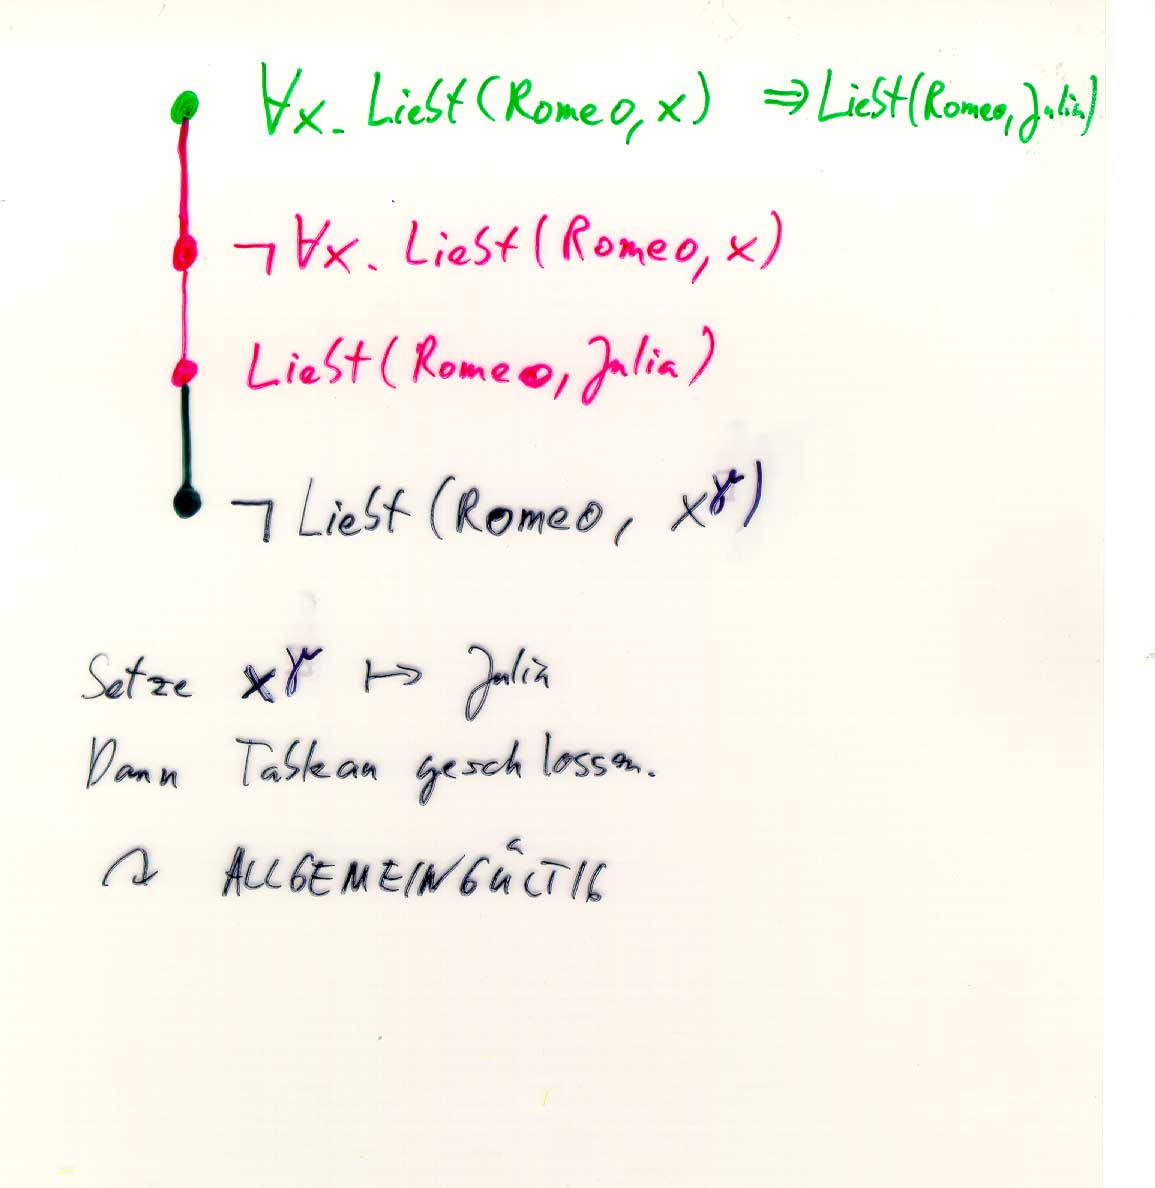 ∀x. Liebt(Romeo, x) ⇒ Liebt(Romeo, Julia)
¬∀x. Liebt(Romeo, x)
Liebt(Romeo, Julia)
¬Liebt(Romeo, x^γ)
Setze x^γ ↦ Julia
Dann Tableau geschlossen.
↷ ALLGEMEINGÜLTIG